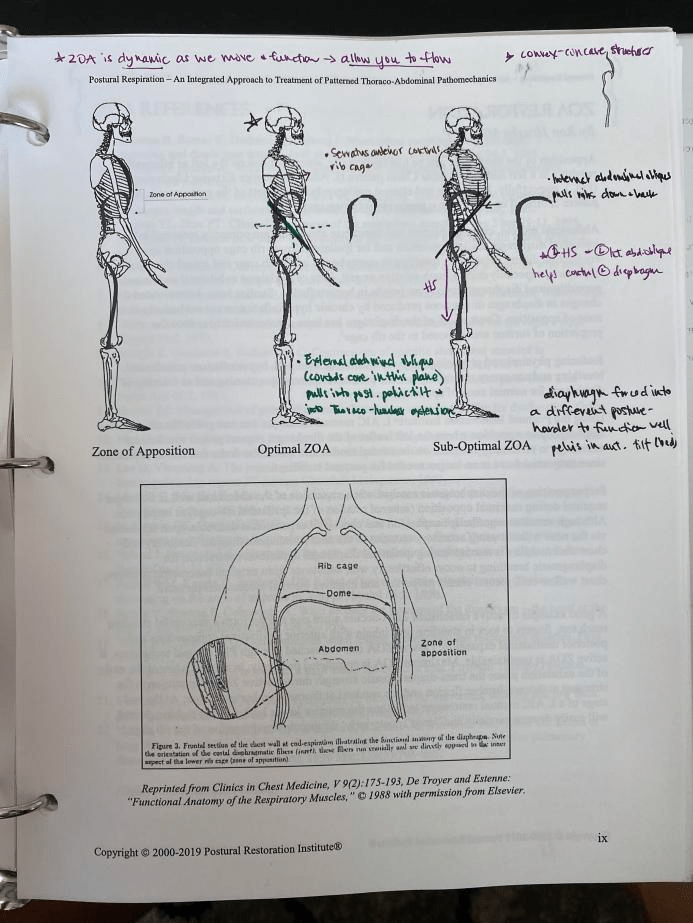 ★ ZOA is dynamic as we move + function → allow you to flow
convex-concave structures
Postural Respiration – An Integrated Approach to Treatment of Patterned Thoraco-Abdominal Pathomechanics
Zone of Apposition
• Serratus anterior controls
rib cage
• Internal abdominal obliques
pulls ribs down + back
HS
HS - Ⓛ Int abd oblique
helps control Ⓛ diaphragm
• External abdominal oblique
(controls core in this plane)
pulls into post. pelvic tilt
into Thoraco-lumbar
diaphragm forced into
a different posture -
harder to function well
pelvis in ant. tilt (bad)
Zone of Apposition
Optimal ZOA
Sub-Optimal ZOA
Rib cage
Dome
Abdomen
Zone of
apposition
Figure 3. Frontal section of the chest wall at end-expiration illustrating the functional anatomy of the diaphragm. Note
the orientation of the costal diaphragmatic fibers (insert), these fibers run cranially and are directly apposed to the inner
aspect of the lower rib cage (zone of apposition).
Reprinted from Clinics in Chest Medicine, V 9(2):175-193, De Troyer and Estenne:
"Functional Anatomy of the Respiratory Muscles," © 1988 with permission from Elsevier.
ix
Copyright © 2000-2019 Postural Restoration Institute®